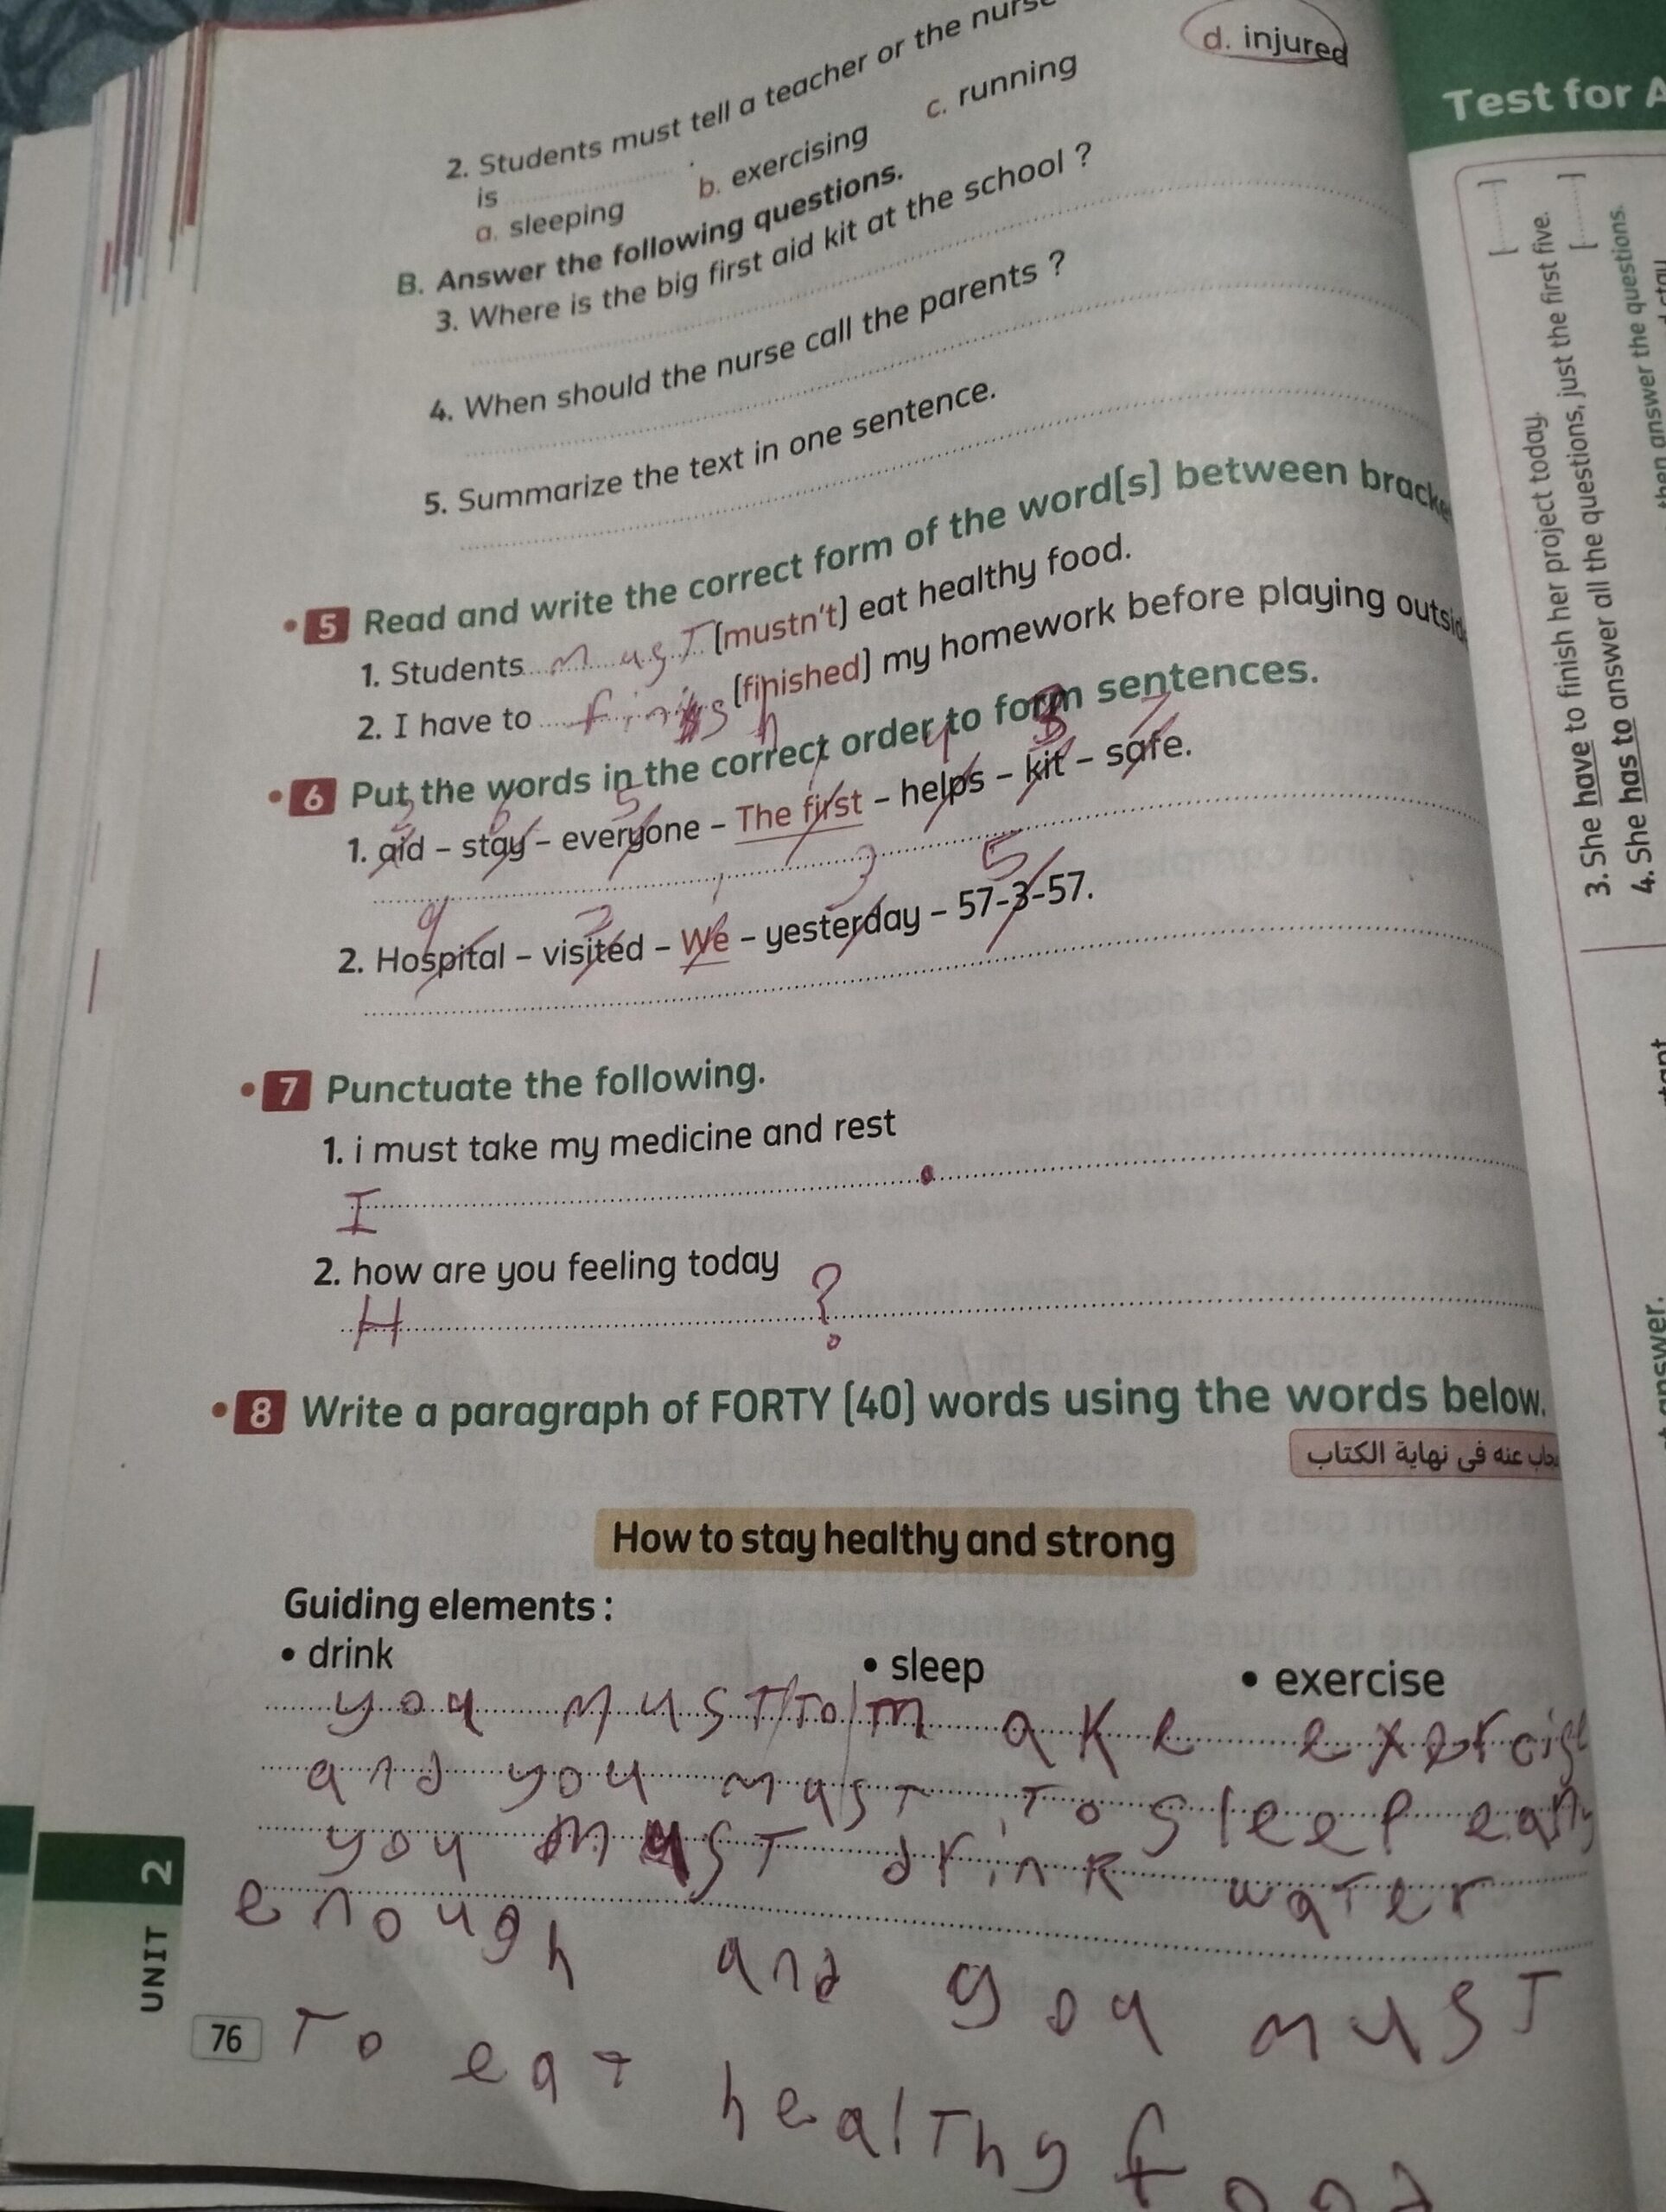 2. Students must tell a teacher or the nurse
is ............
a. sleeping b. exercising c. running d. injured
B. Answer the following questions.
3. Where is the big first aid kit at the school ?
4. When should the nurse call the parents ?
5. Summarize the text in one sentence.
5 Read and write the correct form of the word(s) between
1. Students must (mustn't) eat healthy food.
2. I have to finish (finished) my homework before playing
6 Put the words in the correct order to form sentences.
3 6 5 1 4 3 7
1. aid – stay – everyone – The first – helps – kit – safe.
4 2 1 3 5
2. Hospital – visited – We – yesterday – 57-3-57.
7 Punctuate the following.
1. i must take my medicine and rest
I .
2. how are you feeling today
H ?
8 Write a paragraph of FORTY (40) words using the words below.
عنه فى نهاية الكتاب
How to stay healthy and strong
Guiding elements :
• drink • sleep • exercise
you must to make exercise
and you must to sleep early
you must drink water
enough and you must
To eat healthy food
UNIT 2
76
Test for
[..........]
3. She have to finish her project today.
[..........]
4. She has to answer all the questions, just the first five.
then answer the questions.
answer.